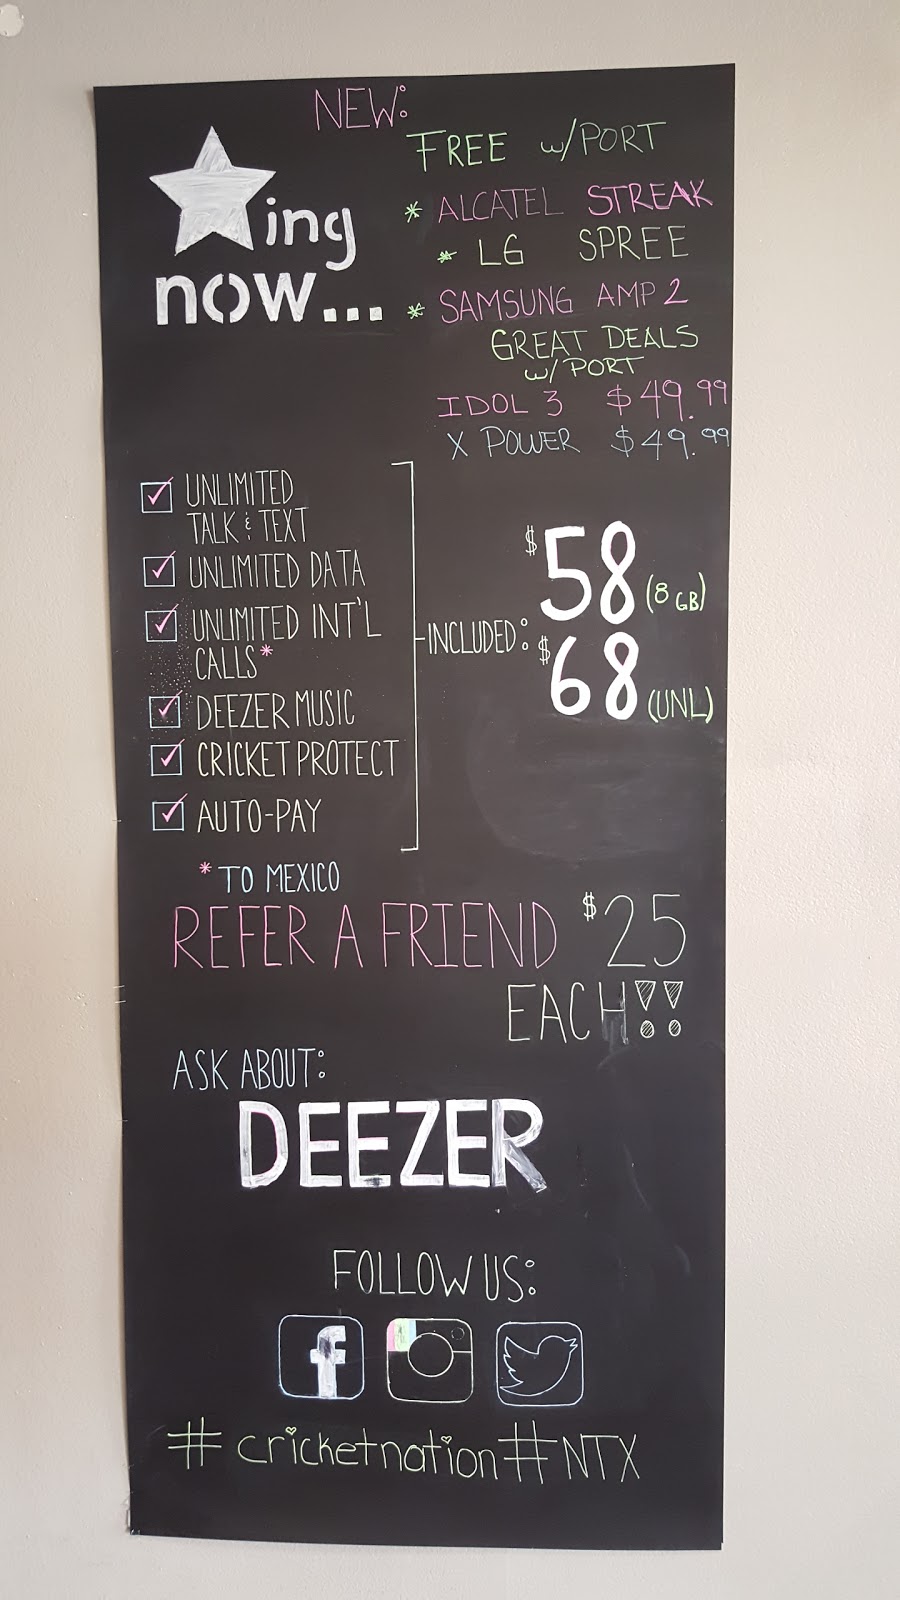 NEW:
FREE w/PORT
ing
now...
* ALCATEL STREAK
* LG SPREE
* SAMSUNG AMP 2
GREAT DEALS
w/ PORT
IDOL 3 $49.99
X POWER $49.99
UNLIMITED
TALK & TEXT
UNLIMITED DATA
UNLIMITED INT'L
CALLS*
DEEZER MUSIC
CRICKET PROTECT
AUTO-PAY
INCLUDED:
$58 (8 GB)
$68 (UNL)
*TO MEXICO
REFER A FRIEND $25
EACH!!
ASK ABOUT:
DEEZER
FOLLOW US:
f
#cricketnation #NTX